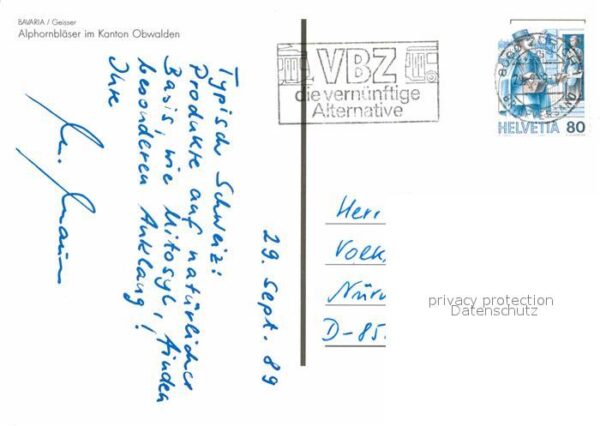 BAVARIA / Geisser
Alphornbläser im Kanton Obwalden
VBZ
die vernünftige
Alternative
HELVETIA 80
Typisch Schweiz:
Produkte auf natürlicher
Basis, wie Mitosyl, finden
besonderen Anklang!
Ihre
29. Sept. 89
Herr
Volk
Nürn
D-85
privacy protection
Datenschutz